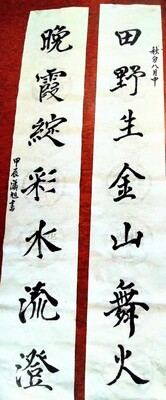 秋分八月中
田野生金山舞火
晚霞綻彩水流澄
甲辰瀛旭書